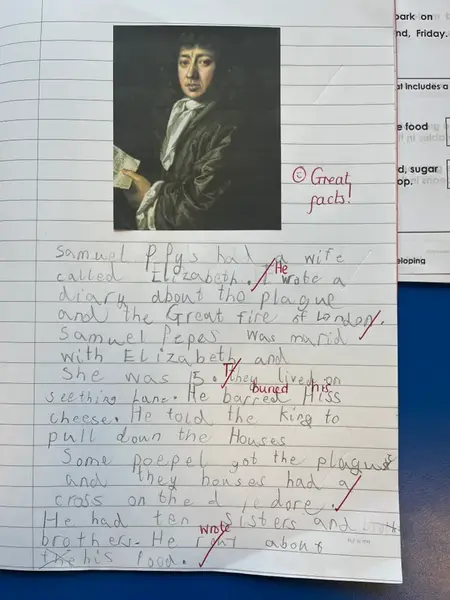 park on
nd, Friday.
at includes a
e food
d, sugar
op.
eloping
Great
facts!
Samuel Ppy's had a wife
called Elizabeth. He wrote a
diary about the plague
and the Great fire of London.
Samuel Pepes was marid
with Elizabeth and
She was 15. They lived on
buried his
seething Lane. He barred Hiss
cheese. He told the King to
pull down the Houses
Some poepel got the plague
and they houses had a
cross on the dore.
He had ten Sisters and
wrote
brothers. He about
his food.